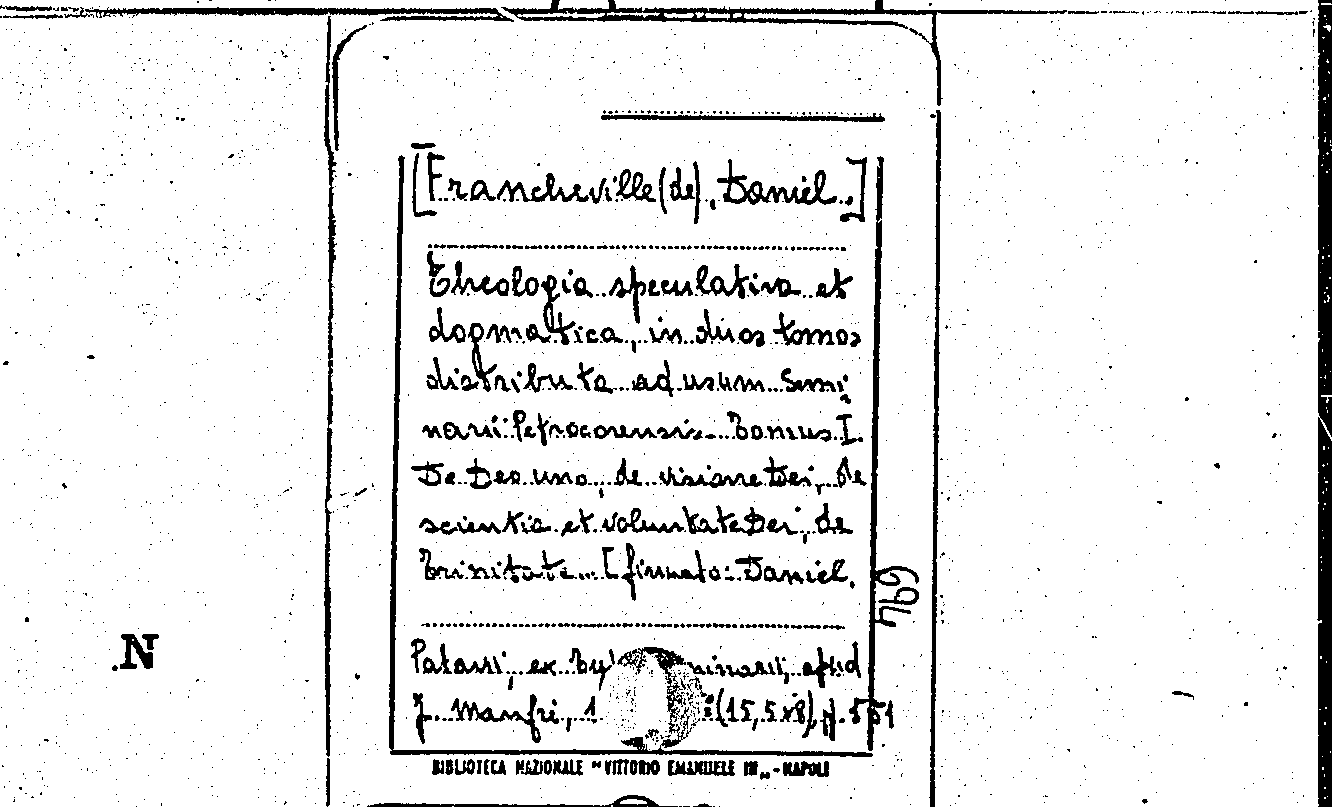 [Francheville (de), Daniel.]
Theologia speculativa et
dogmatica, in duos tomos
distributa ad usum Semi
narii Petrocorensis. Tomus I.
De Deo uno, de visione Dei, de
scientia et voluntate Dei, de
Trinitate... [firmato: Daniel.
694
Patavii, ex
apud
J. Manfrè, 1
(15,5x8), p. 551
BIBLIOTECA NAZIONALE "VITTORIO EMANUELE III" - NAPOLI
N